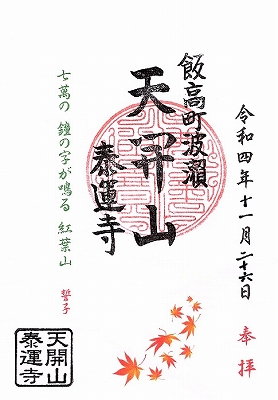 奉拝
令和四年十一月二十六日
飯高町波瀬
天開山
泰運寺
七萬の 鐘の字が鳴る 紅葉山
誓子
天開山
泰運寺